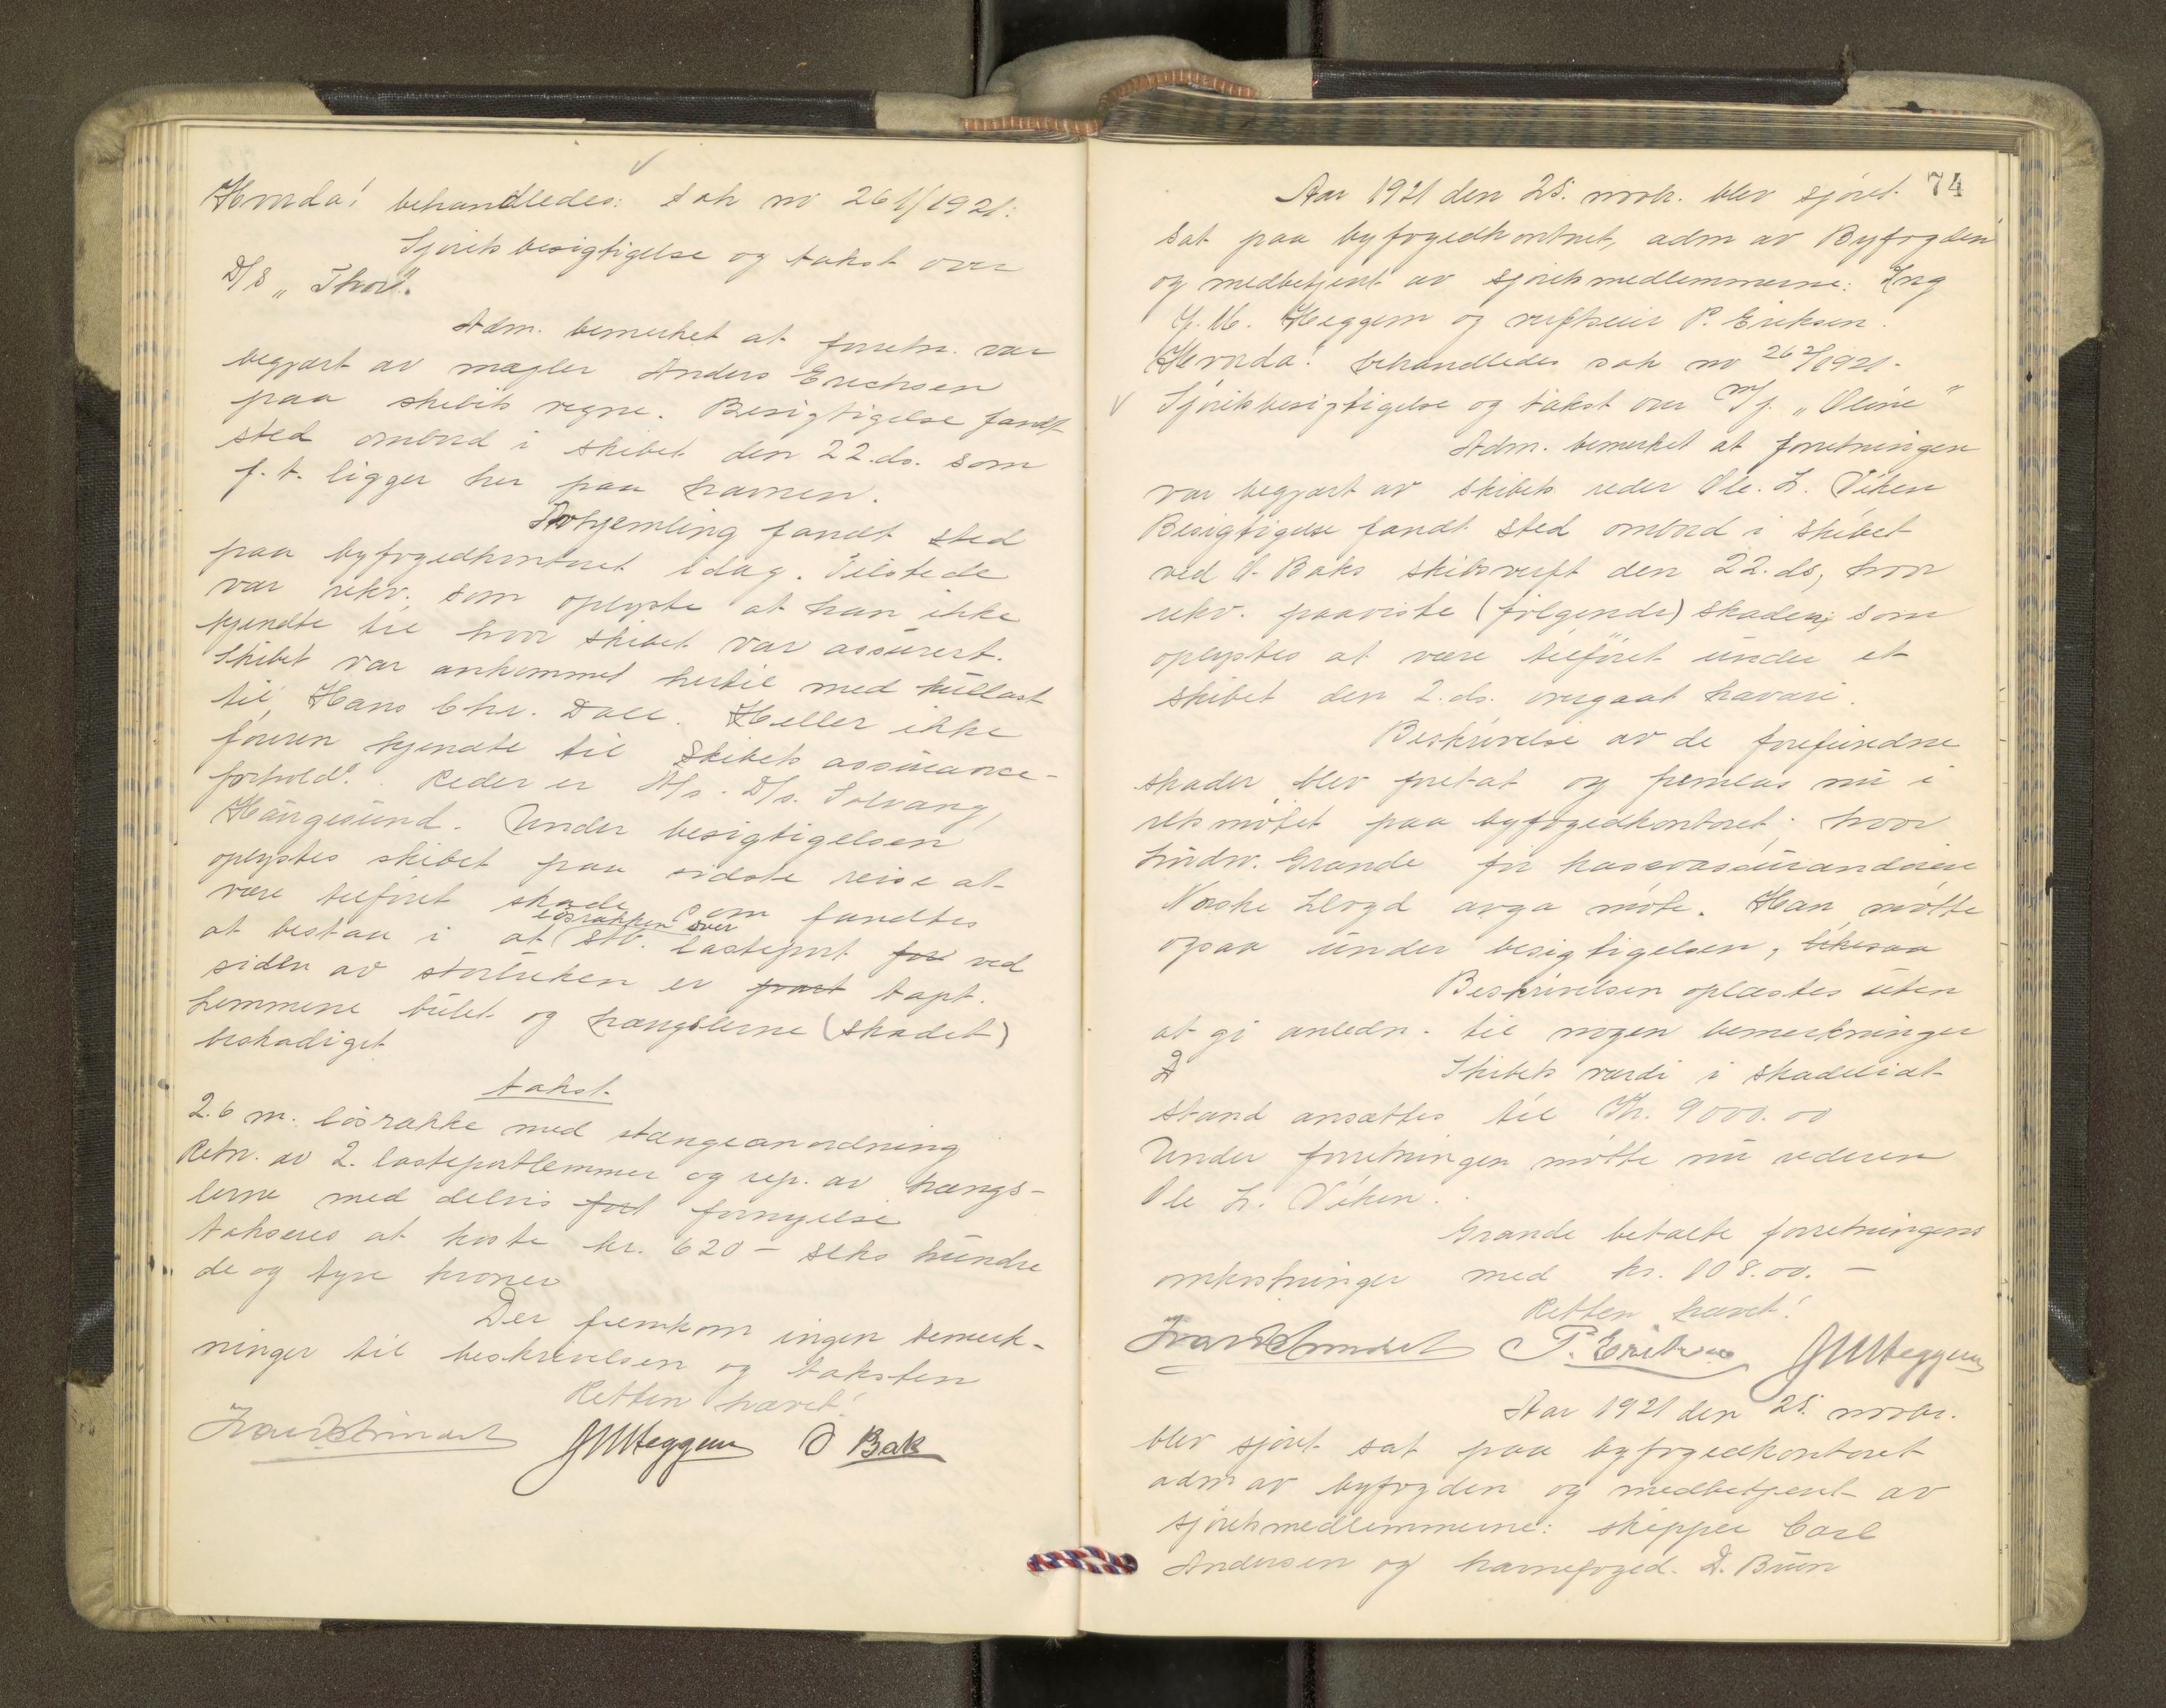 Hvorda! behandledes: Sak no 261/1921:
Sjöretsbesigtigelse og takst over
D/S „Thor".
Adm. bemerket at forretn. var
begjært av mægler Anders Erichsen
paa skibets regne. Besigtigelse fandt
sted ombord i skibet den 22. ds. som
f. t. ligger her paa havnen.
Avhjemling fandt sted
paa byfogedkontoret idag. Tilstede
var rekv. som oplyste at han ikke
kjendte til hvor skibet var assurert.
Skibet var ankommet hertil med kullast
til Hans Chr. Dall. Heller ikke
föreren kjendte til skibets assurance-
forhold. Reder er A/s. D/s. Solvang,
Haugesund. Under besigtigelsen
oplystes skibet paa sidste reise at
være tilföiet skade som fandtes
lösrækken over
at bestaa i at stb. lasteport for ved
siden av storluken er vært tapt.
Lemmene bulet og hængslerne (skadet)
beskadiget
Takst.
2.6 m. lösrække med stængeanordning
Retn. av 2. lasteportlemmer og rep. av hængs-
lerne med delvis forf fornyelse
takseres at koste kr. 620 - seks hundre
de og tyve kroner
Der fremkom ingen bemerk-
ninger til beskrivelsen og taksten
Retten hævet!
JMHeggem O Bak
74
Aar 1921 den 25. novbr. blev sjöret
sat paa byfogedkontoret, adm av Byfogden
og medbetjent av sjöretsmedlemmerne: Ing
J. M. Heggem og verftseier P. Eriksen.
Hvorda! behandledes sak no 262/1921.
Sjöretsbesigtigelse og takst over M/j. „Oline"
Adm. bemerket at forretningen
var begjært av skibets reder Ole. L. Viken
Besigtigelse fandt sted ombord i skibet
ved O. Baks skibsverft den 22. ds, hvor
rekv. paaviste (fölgende) skaden; som
oplystes at være tilföiet under et
skibet den 2. ds. overgaat havari.
Beskrivelse av de forefundne
skader blev foretat og fremlas nu i
retsmötet paa byfogedkontoret; hvor
Ludv. Grande for kascoassurandören
Norske Lloyd avga möte. Han mötte
ogsaa under besigtigelsen, likesaa
Beskrivelsen oplæstes uten
at gi anledn. til nogen bemerkninger
Skibets værdi i skadelidt
stand ansættes til Kr. 9000.00
Under forretningen mötte nu rederen
Ole L. Viken.
Grande betalte forretningens
omkostninger med kr. 108.00. -
Retten hævet!
P. Eriksen JMHeggem
Aar 1921 den 25. novbr.
blev sjöret sat paa byfogedkontoret
adm av byfogden og medbetjent av
sjöretsmedlemmerne: skipper Carl
Andersen og havnefoged. D. Buun